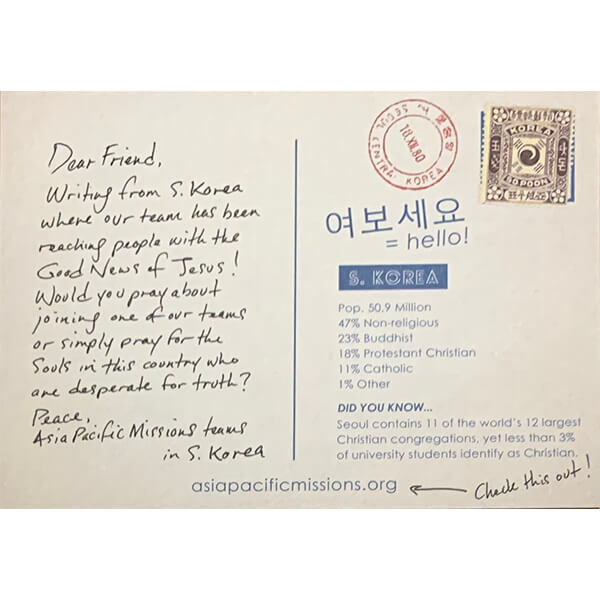 Dear Friend,
Writing from S. Korea
where our team has been
reaching people with the
Good News of Jesus!
Would you pray about
joining one of our teams
or simply pray for the
Souls in this country who
are desperate for truth?
Peace,
Asia Pacific Missions teams
in S. Korea
SEOUL CENTRAL KOREA
18.XII.80
KOREA
50 POON
여보세요
= hello!
S. KOREA
Pop. 50.9 Million
47% Non-religious
23% Buddhist
18% Protestant Christian
11% Catholic
1% Other
DID YOU KNOW...
Seoul contains 11 of the world's 12 largest
Christian congregations, yet less than 3%
of university students identify as Christian.
asiapacificmissions.org
Check this out!